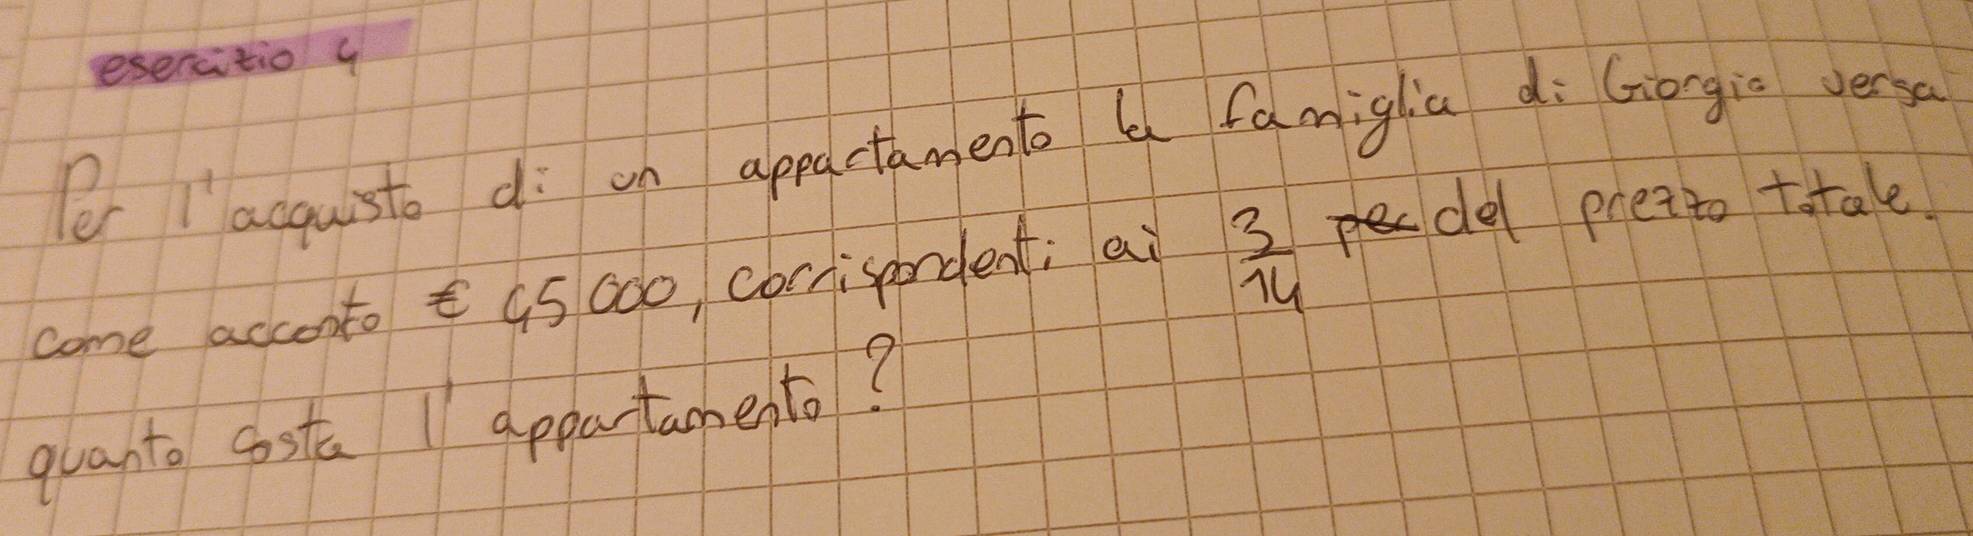 esercizio 4
Per l'acquisto di un appartamento la famiglia di Giorgio versa
come acconto € 45 000, corrispondenti ai 3/14 del prezzo totale.
quanto costa l'appartamento?